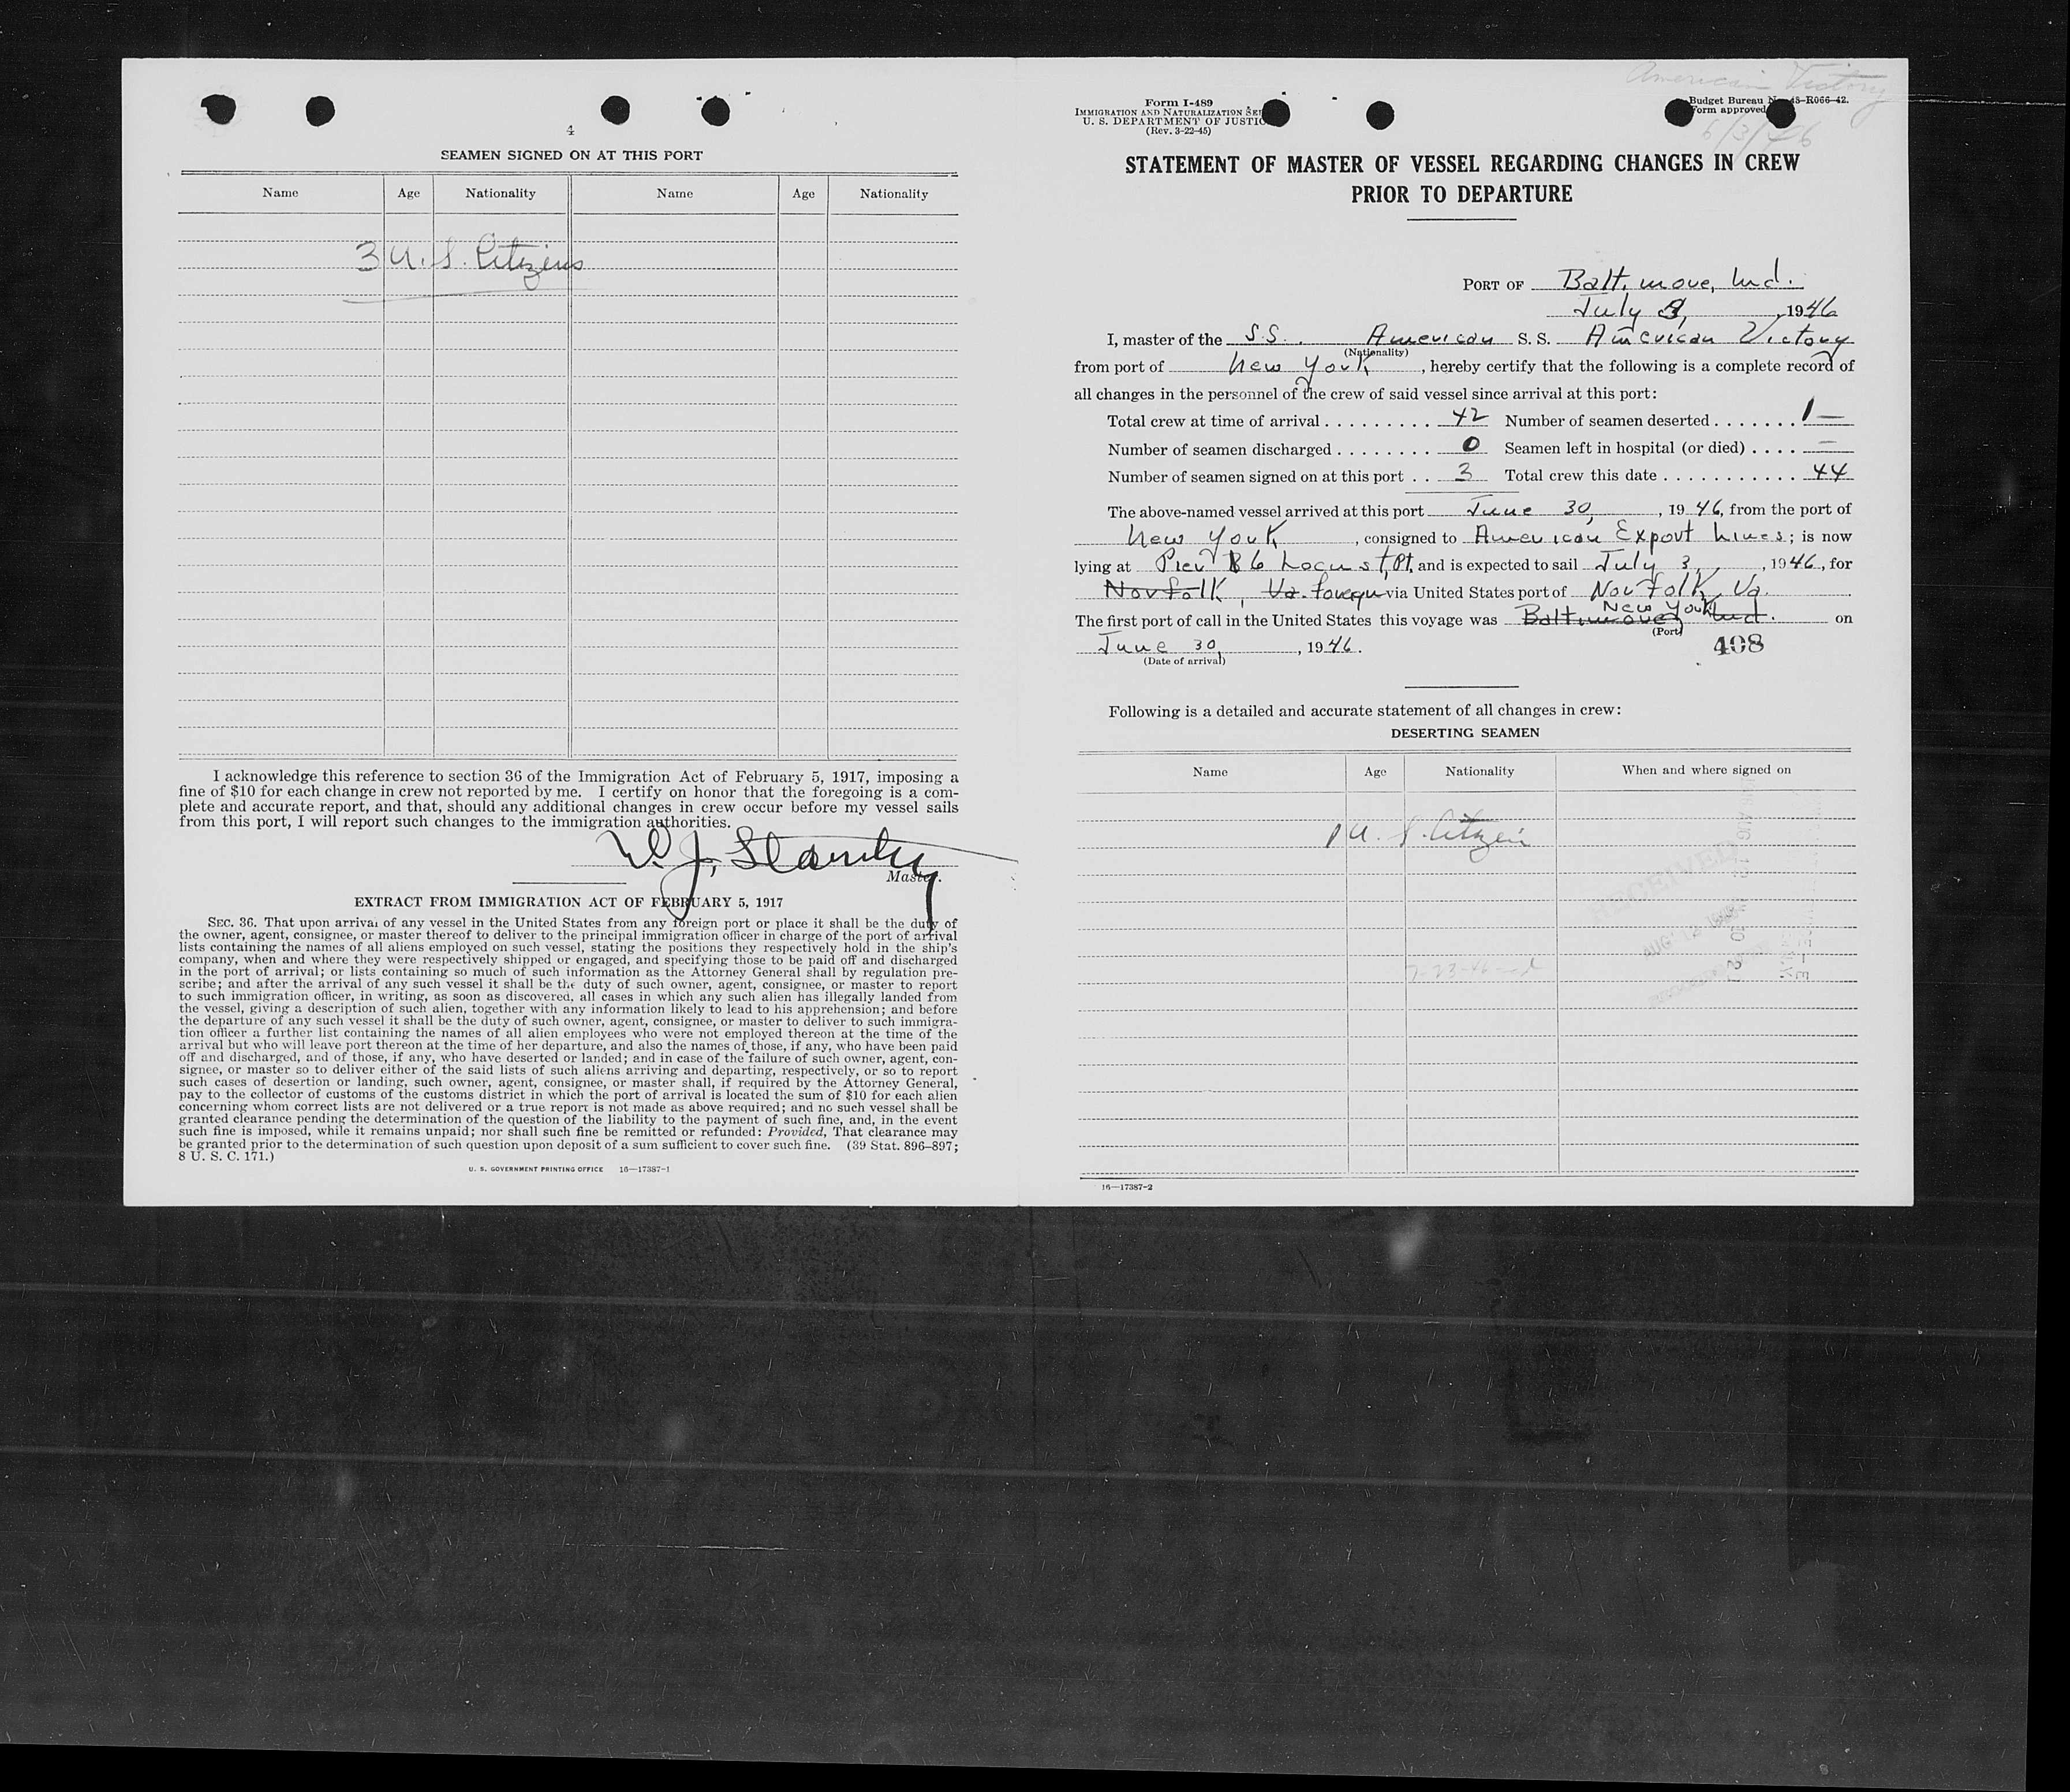 4
SEAMEN SIGNED ON AT THIS PORT
Name Age Nationality Name Age Nationality
3 U. S. Citizens
I acknowledge this reference to section 36 of the Immigration Act of February 5, 1917, imposing a
fine of $10 for each change in crew not reported by me. I certify on honor that the foregoing is a com-
plete and accurate report, and that, should any additional changes in crew occur before my vessel sails
from this port, I will report such changes to the immigration authorities.
Master.
EXTRACT FROM IMMIGRATION ACT OF FEBRUARY 5, 1917
SEC. 36. That upon arrival of any vessel in the United States from any foreign port or place it shall be the duty of
the owner, agent, consignee, or master thereof to deliver to the principal immigration officer in charge of the port of arrival
lists containing the names of all aliens employed on such vessel, stating the positions they respectively hold in the ship's
company, when and where they were respectively shipped or engaged, and specifying those to be paid off and discharged
in the port of arrival; or lists containing so much of such information as the Attorney General shall by regulation pre-
scribe; and after the arrival of any such vessel it shall be the duty of such owner, agent, consignee, or master to report
to such immigration officer, in writing, as soon as discovered, all cases in which any such alien has illegally landed from
the vessel, giving a description of such alien, together with any information likely to lead to his apprehension; and before
the departure of any such vessel it shall be the duty of such owner, agent, consignee, or master to deliver to such immigra-
tion officer a further list containing the names of all alien employees who were not employed thereon at the time of the
arrival but who will leave port thereon at the time of her departure, and also the names of those, if any, who have been paid
off and discharged, and of those, if any, who have deserted or landed; and in case of the failure of such owner, agent, con-
signee, or master so to deliver either of the said lists of such aliens arriving and departing, respectively, or so to report
such cases of desertion or landing, such owner, agent, consignee, or master shall, if required by the Attorney General,
pay to the collector of customs of the customs district in which the port of arrival is located the sum of $10 for each alien
concerning whom correct lists are not delivered or a true report is not made as above required; and no such vessel shall be
granted clearance pending the determination of the question of the liability to the payment of such fine, and, in the event
such fine is imposed, while it remains unpaid; nor shall such fine be remitted or refunded: Provided, That clearance may
be granted prior to the determination of such question upon deposit of a sum sufficient to cover such fine. (39 Stat. 896–897;
8 U. S. C. 171.)
U. S. GOVERNMENT PRINTING OFFICE 16—17387-1
American Victory
6/3/46
Form I-489
IMMIGRATION AND NATURALIZATION SE
U. S. DEPARTMENT OF JUSTIC
(Rev. 3-22-45)
Budget Bureau N 43-R066-42.
Form approved
STATEMENT OF MASTER OF VESSEL REGARDING CHANGES IN CREW
PRIOR TO DEPARTURE
PORT OF Baltimore, Md.
July 3, 1946
I, master of the S.S. American S. S. American Victory
(Nationality)
from port of New York, hereby certify that the following is a complete record of
all changes in the personnel of the crew of said vessel since arrival at this port:
Total crew at time of arrival . . . . . . . . . 42 Number of seamen deserted . . . . . . . 1 —
Number of seamen discharged . . . . . . . . 0 Seamen left in hospital (or died) . . . . —
Number of seamen signed on at this port . . 3 Total crew this date . . . . . . . . . . . 44
The above-named vessel arrived at this port June 30, 1946, from the port of
New York, consigned to American Export Lines; is now
lying at Pier 6 Locust Pt, and is expected to sail July 3, 1946, for
Norfolk, Va. foreign via United States port of Norfolk, Va.
The first port of call in the United States this voyage was Baltimore Md. New York on
(Port)
June 30, 1946.
(Date of arrival)
408
Following is a detailed and accurate statement of all changes in crew:
DESERTING SEAMEN
Name Age Nationality When and where signed on
1 U. S. Citizen
RECEIVED
7-23-46
16—17387-2